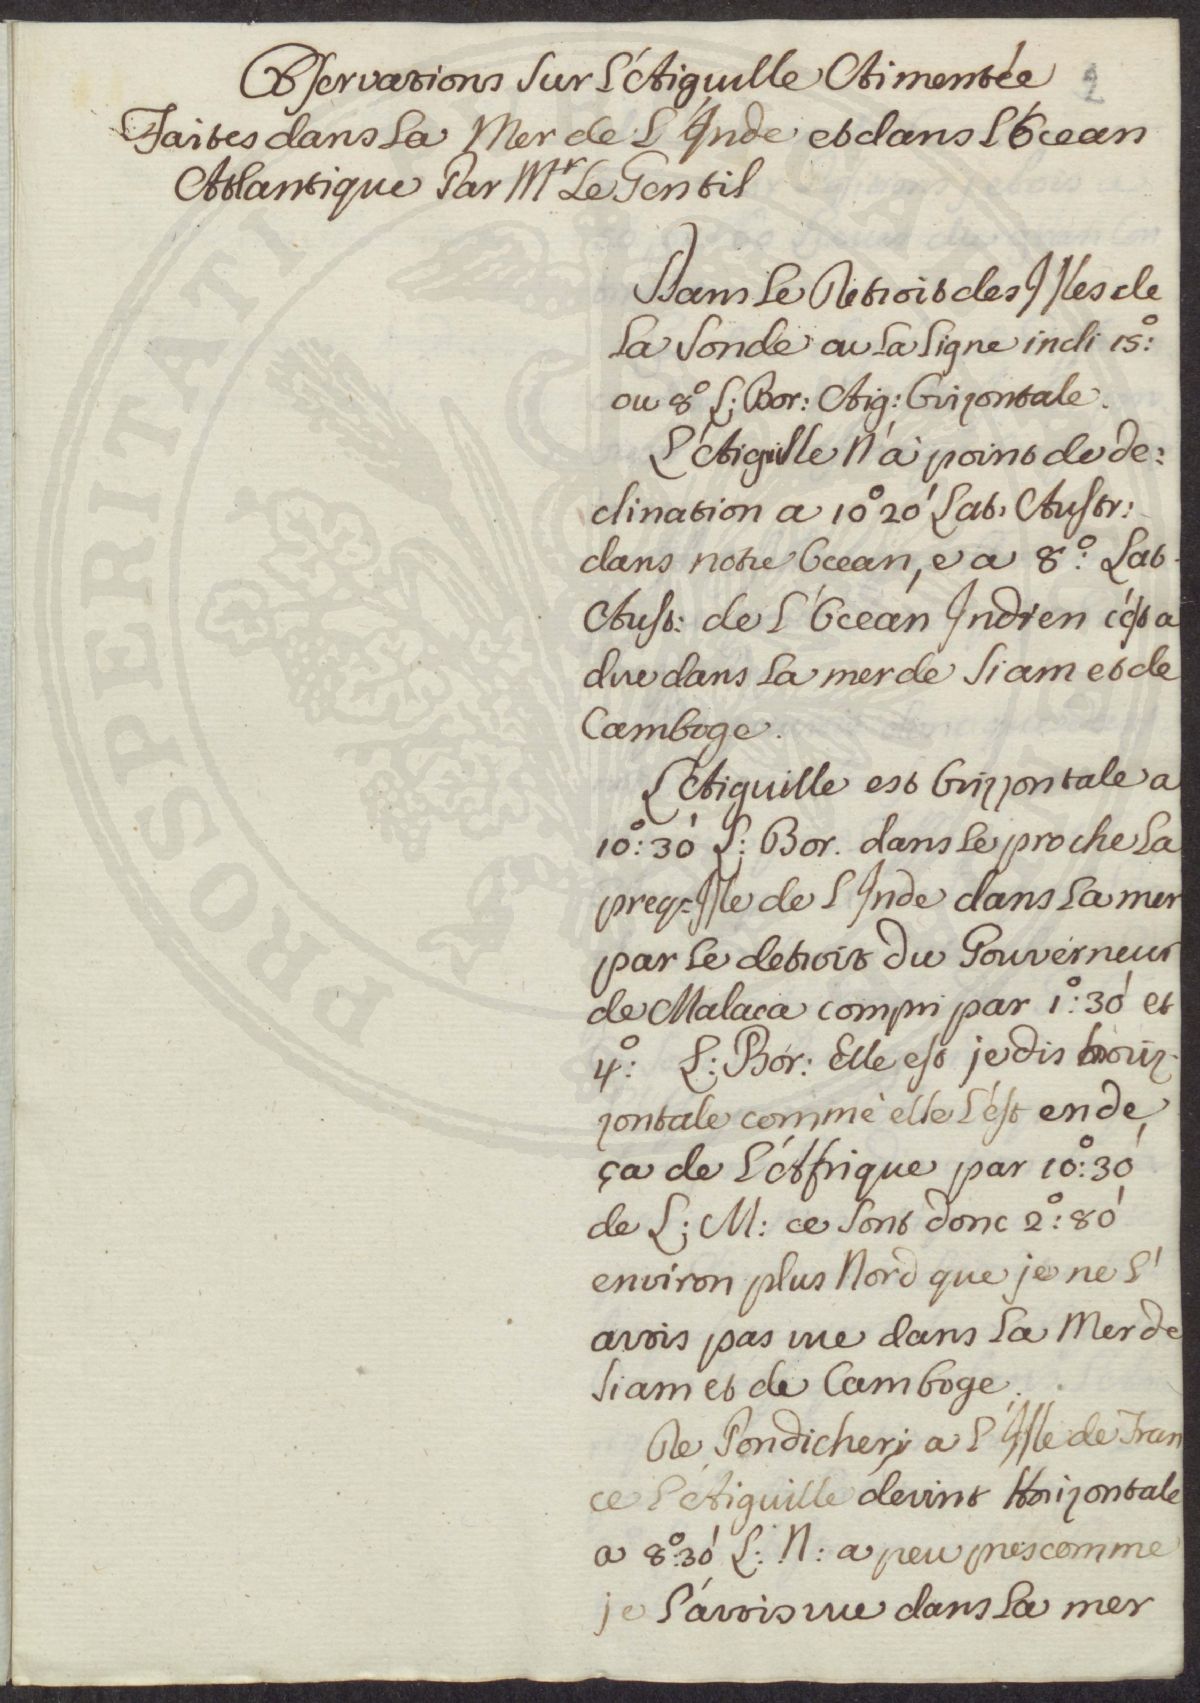 Observations Sur L'Aiguille Aimentée
2
Faites dans La Mer de L'Inde et dans L'Ocean
Atlantique Par Mr Le Gentil
Dans Le Detroit des Isles de
La Sonde ou La Ligne incli 15°:
ou 8° L: Bor: Aig: Orizontale.
L'Aiguille N'a point de de:
clination a 10° 20' Lat. Austr:
dans notre Ocean, e a 8°: Lat.
Aust: de L'Ocean Indien c'est a
dire dans La mer de Siam et de
Camboge.
L'Aiguille est Orizzontale a
10°: 30' L: Bor. dans Le proche La
preq=Isle de L'Inde dans La mer
par Le detroit du Gouverneur
de Malaca compri par 1°: 30' et
4°: L: Bor: Elle est je dis horiz-
zontale comme elle L'est en de
ça de L'Afrique par 10°: 30'
de L: M: ce Sont donc 2°: 80'
environ plus Nord que je ne L'
avois pas vue dans La Mer de
Siam et de Camboge.
De Pondichery a L'Isle de Fran
ce L'Aiguille devint Horizontale
a 8°: 30' L: N: a peu pres comme
je L'avois vue dans La mer
PROSPERITATI